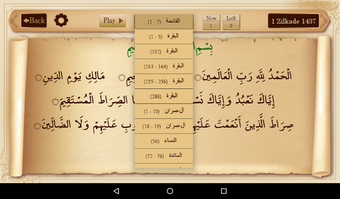 Back
Play
الفاتحة (1 - 7)
Now Left
1 2
1 Zilkade 1437
البقرة (1 - 5)
البقرة (102)
البقرة (163 - 164)
البقرة (255 - 256)
البقرة (286)
آل عمران (1 - 10)
آل عمران (18 - 19)
النساء (56)
المائدة (72 - 76)
بِسْمِ
الْحَمْدُ لِلَّهِ رَبِّ الْعَالَمِينَ مَالِكِ يَوْمِ الدِّينِ
إِيَّاكَ نَعْبُدُ وَإِيَّاكَ الصِّرَاطَ الْمُسْتَقِيمَ
صِرَاطَ الَّذِينَ أَنْعَمْتَ عَلَيْهِمْ عَلَيْهِمْ وَلَا الضَّالِّينَ